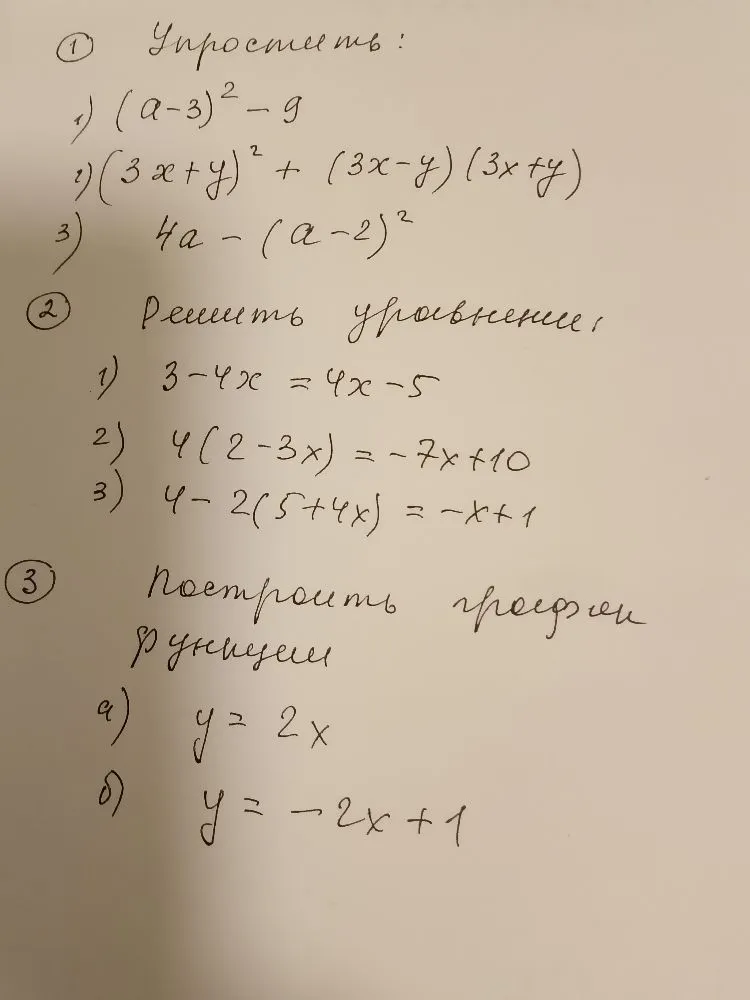 ① Упростить:
1) (a-3)² - 9
2) (3x+y)² + (3x-y)(3x+y)
3) 4a - (a-2)²
② Решить уравнения:
1) 3-4x = 4x-5
2) 4(2-3x) = -7x+10
3) 4-2(5+4x) = -x+1
③ Построить график
функции
а) y = 2x
б) y = -2x+1